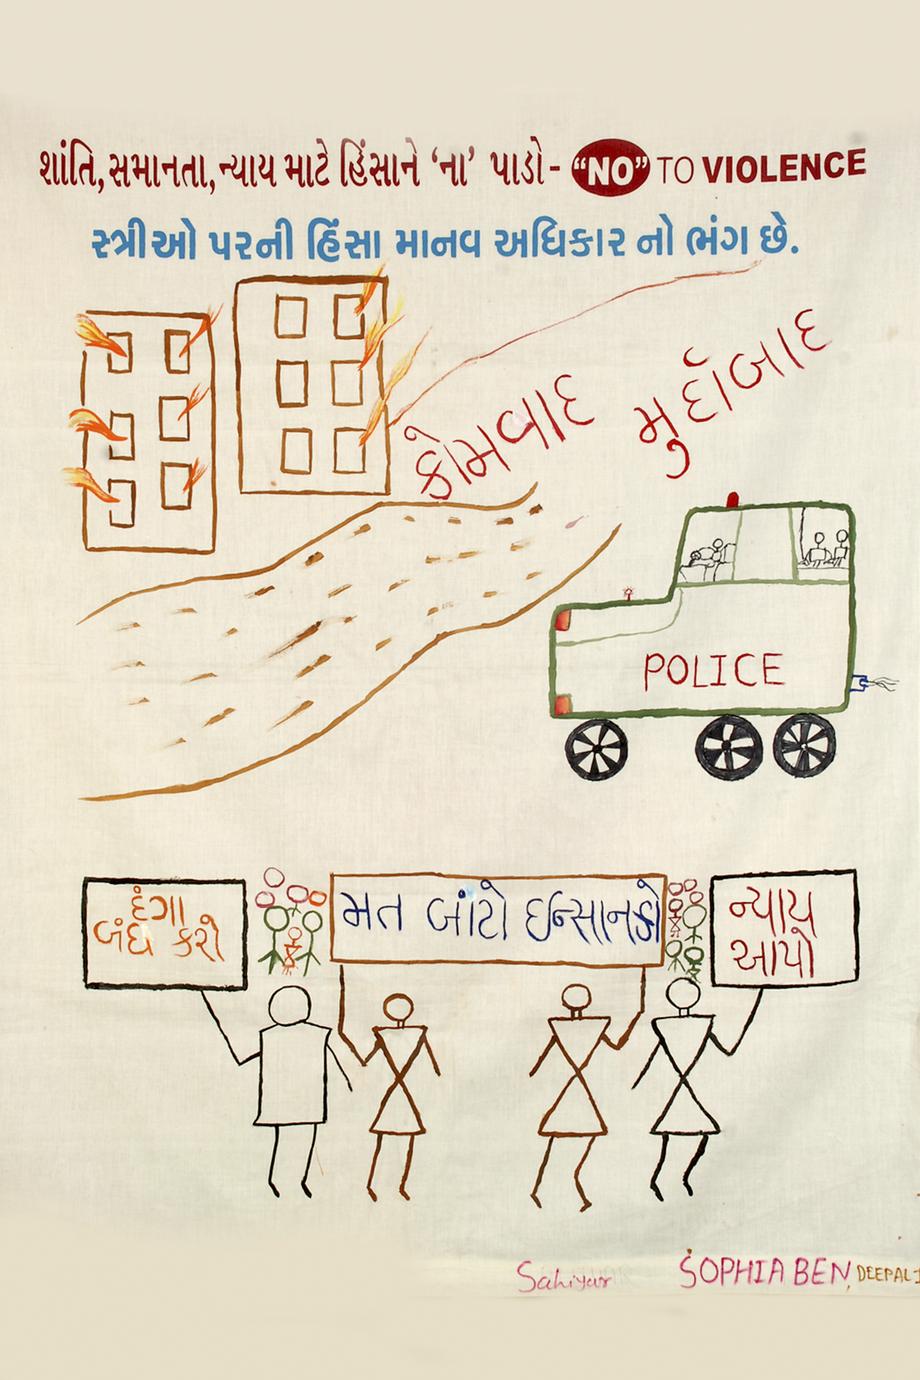 શાંતિ, સમાનતા, ન્યાય માટે હિંસાને ‘ના’ પાડો - “NO” TO VIOLENCE
સ્ત્રીઓ પરની હિંસા માનવ અધિકાર નો ભંગ છે.
કોમવાદ મુર્દાબાદ
POLICE
દંગા
બંધ કરો
મત બાંટો ઈન્સાનકો
ન્યાય
આપો
Sahiyar
SOPHIA BEN, DEEPALI